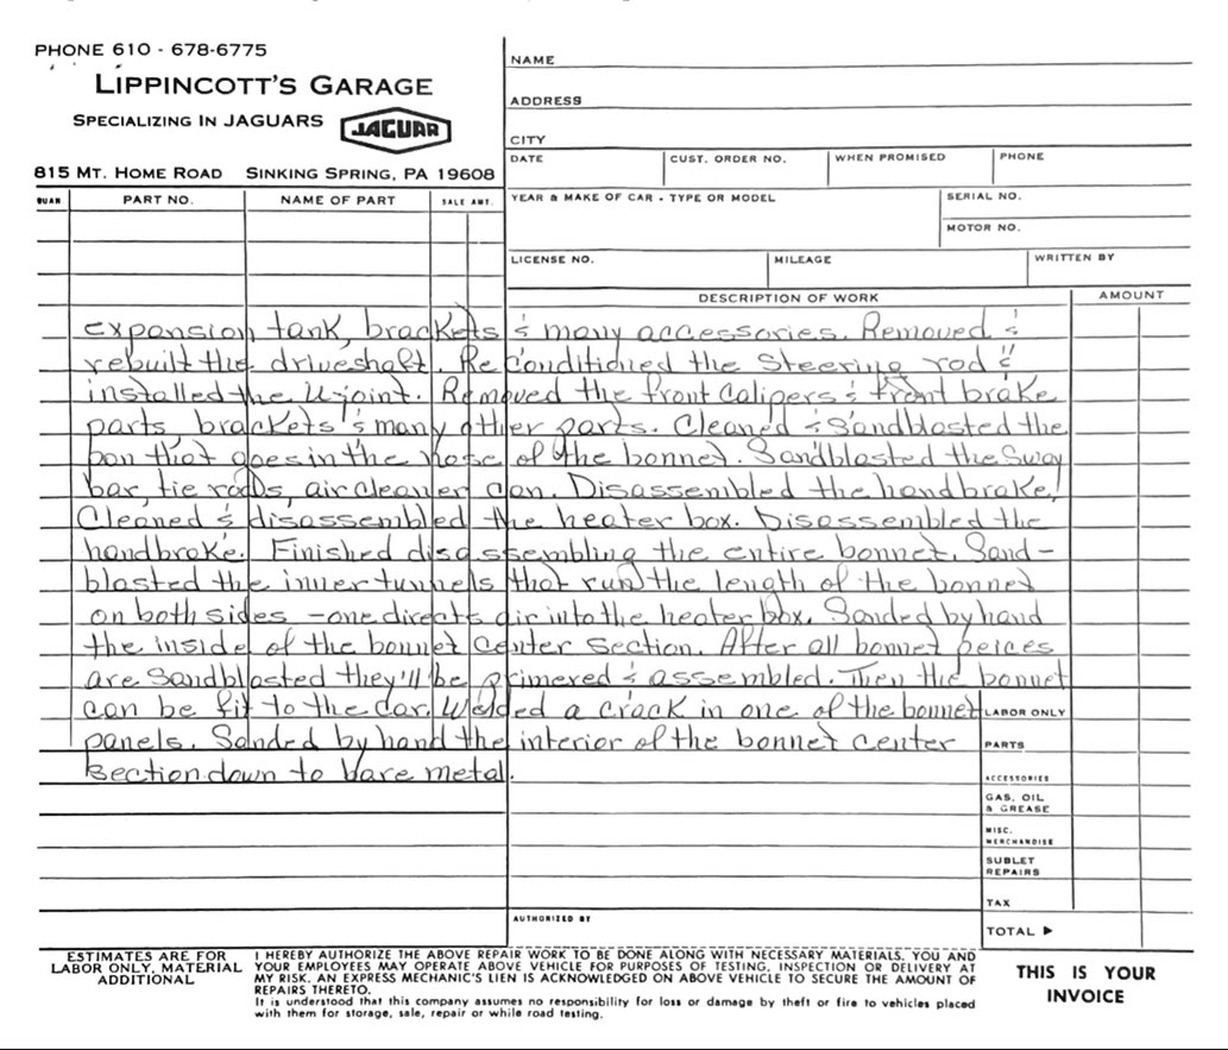 PHONE 610 - 678-6775
LIPPINCOTT'S GARAGE
SPECIALIZING IN JAGUARS
JAGUAR
815 MT. HOME ROAD SINKING SPRING, PA 19608
NAME
ADDRESS
CITY
DATE CUST. ORDER NO. WHEN PROMISED PHONE
QUAN PART NO. NAME OF PART SALE AMT.
YEAR & MAKE OF CAR - TYPE OR MODEL SERIAL NO.
MOTOR NO.
LICENSE NO. MILEAGE WRITTEN BY
DESCRIPTION OF WORK AMOUNT
expansion tank, brackets & many accessories. Removed &
rebuilt the driveshaft. Reconditioned the Steering rod &
installed the U-joint. Removed the front Calipers & front brake
parts, brackets & many other parts. Cleaned & Sandblasted the
pan that goes in the nose of the bonnet. Sandblasted the Sway
bar, tie rods, air cleaner can. Disassembled the handbrake!
Cleaned & disassembled the heater box. Disassembled the
handbrake. Finished disassembling the entire bonnet. Sand-
blasted the inner tunnels that run the length of the bonnet
on both sides - one directs air into the heater box. Sanded by hand
the inside of the bonnet center section. After all bonnet peices
are Sandblasted they'll be primered & assembled. Then the bonnet
can be fit to the car. Welded a crack in one of the bonnet
panels. Sanded by hand the interior of the bonnet center
section down to bare metal.
LABOR ONLY
PARTS
ACCESSORIES
GAS, OIL
& GREASE
MISC.
MERCHANDISE
SUBLET
REPAIRS
TAX
AUTHORIZED BY
TOTAL ▶
ESTIMATES ARE FOR
LABOR ONLY, MATERIAL
ADDITIONAL
I HEREBY AUTHORIZE THE ABOVE REPAIR WORK TO BE DONE ALONG WITH NECESSARY MATERIALS. YOU AND
YOUR EMPLOYEES MAY OPERATE ABOVE VEHICLE FOR PURPOSES OF TESTING, INSPECTION OR DELIVERY AT
MY RISK. AN EXPRESS MECHANIC'S LIEN IS ACKNOWLEDGED ON ABOVE VEHICLE TO SECURE THE AMOUNT OF
REPAIRS THERETO.
It is understood that this company assumes no responsibility for loss or damage by theft or fire to vehicles placed
with them for storage, sale, repair or while road testing.
THIS IS YOUR
INVOICE